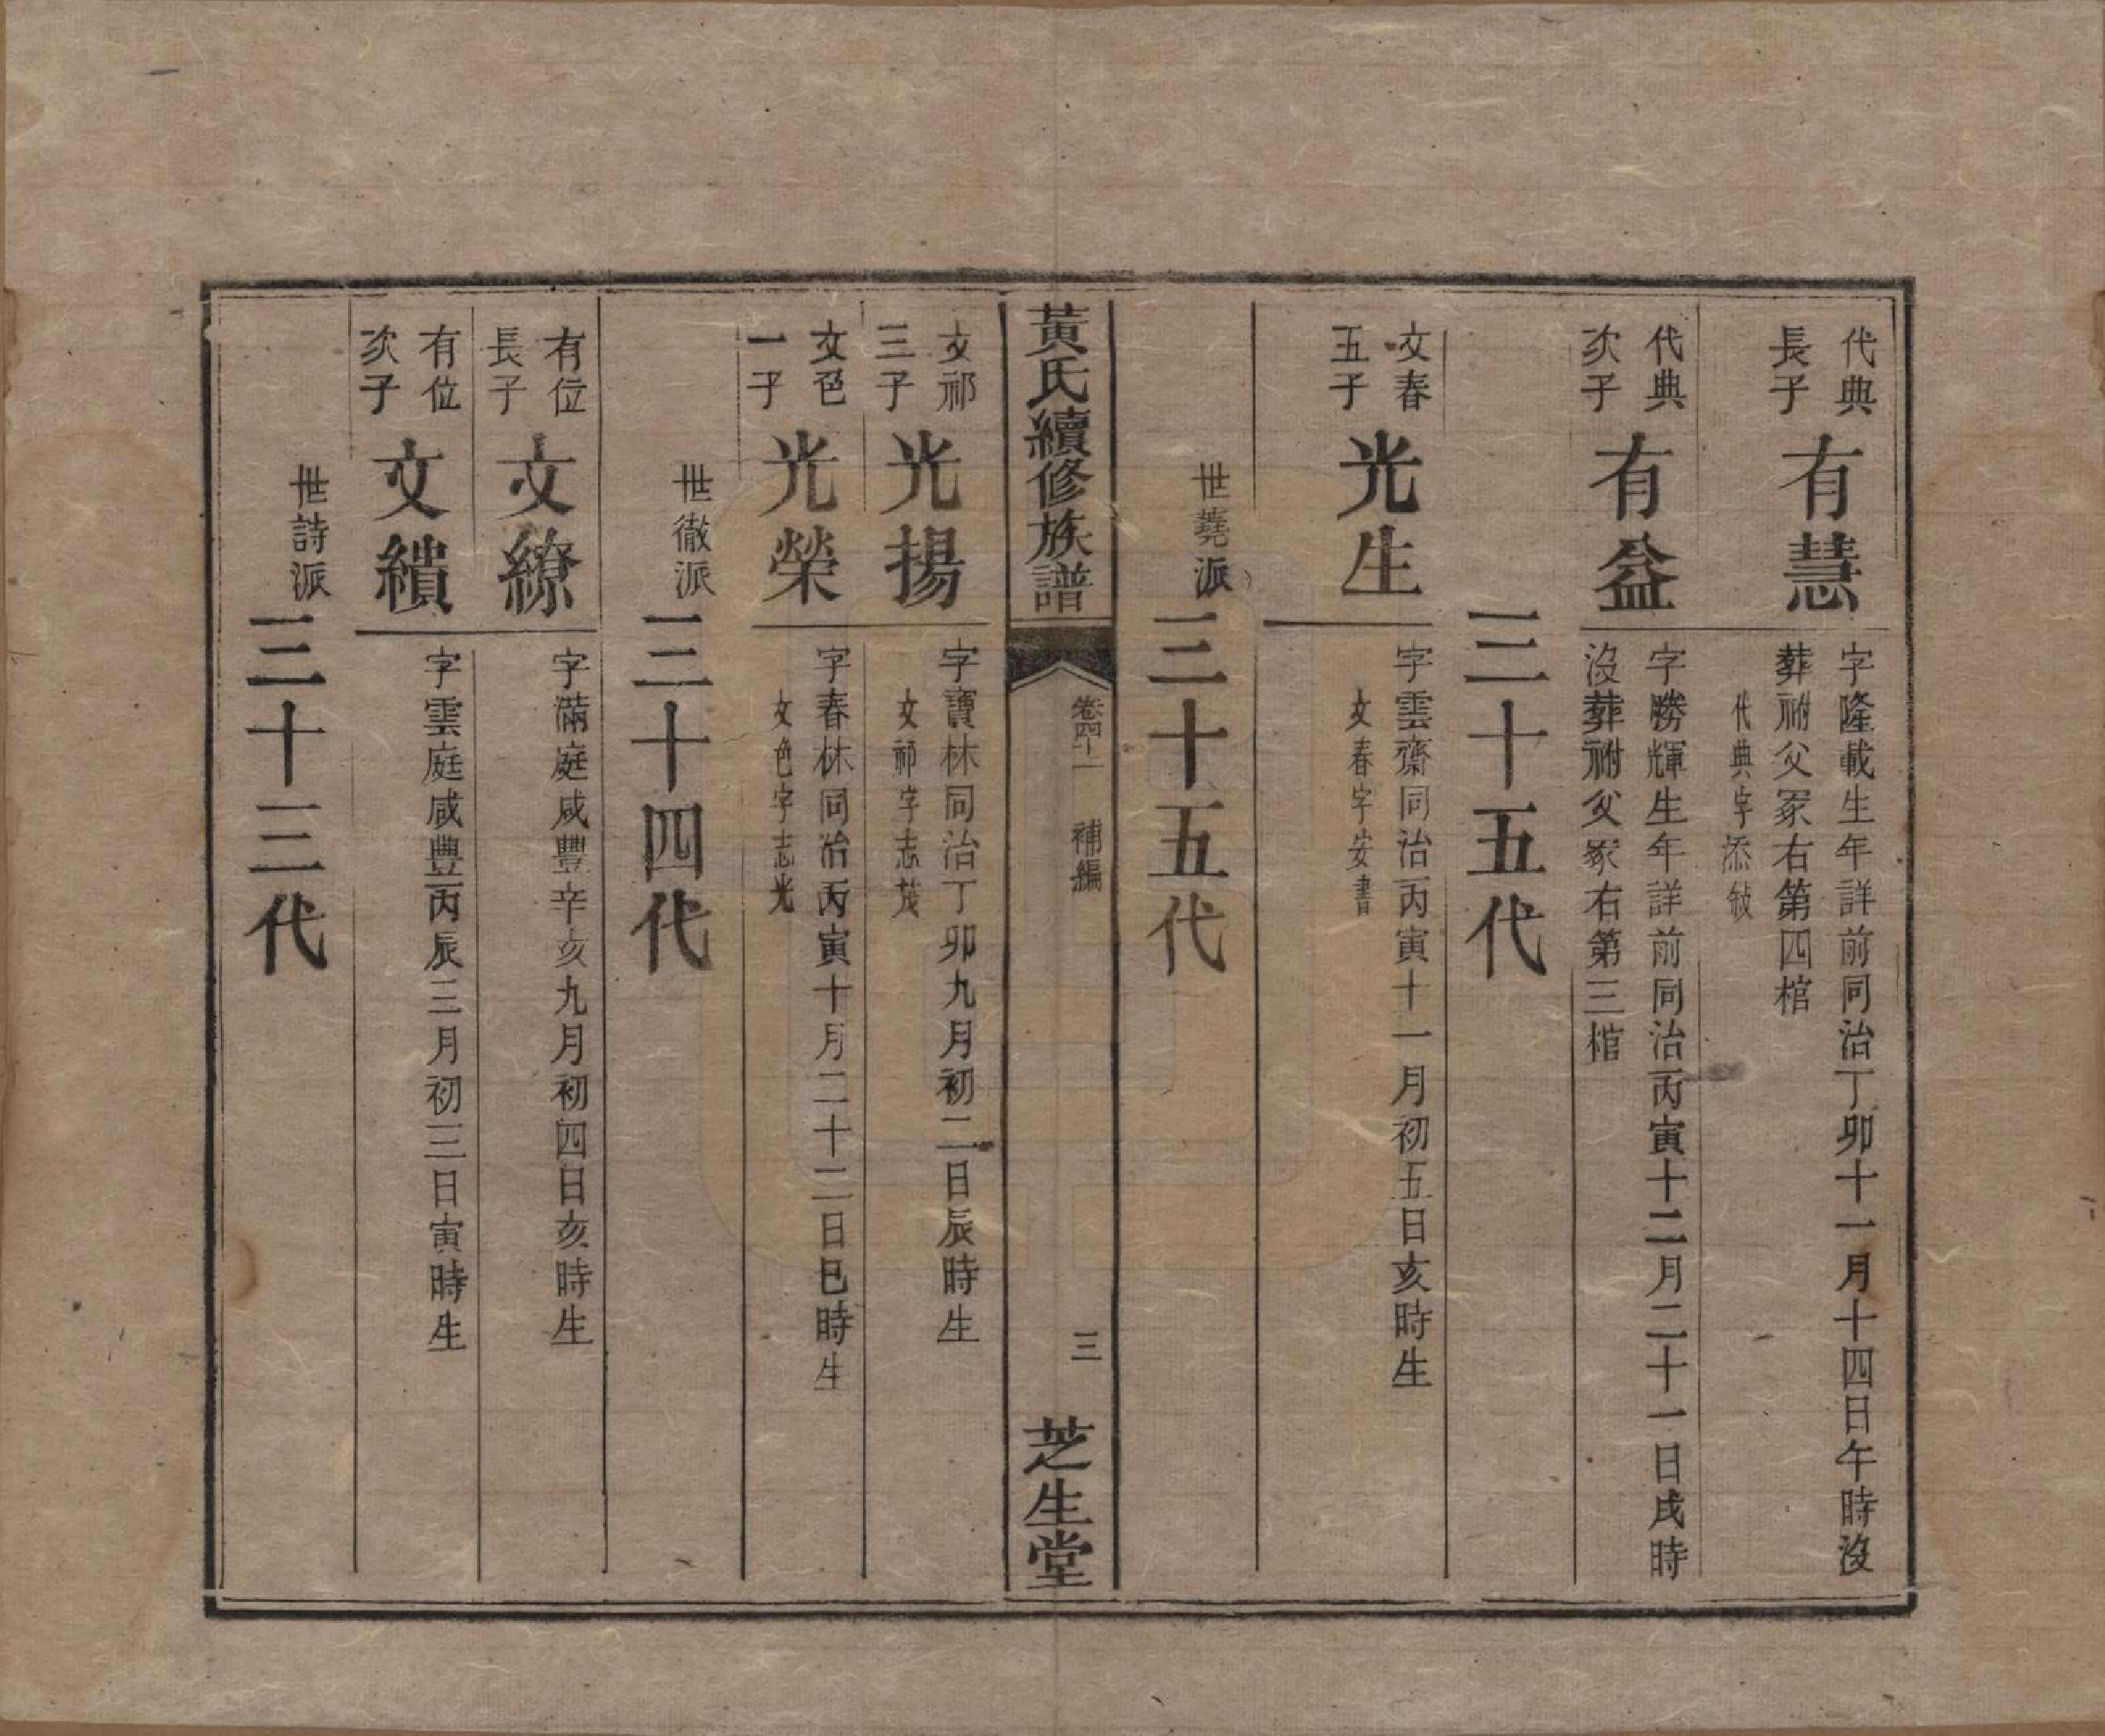 代典
長子
有慧
字隆載生年詳前同治丁卯十一月十四日午時沒
葬祔父冢右第四棺
代典字添敍
代典
次子
有益
字勝輝生年詳前同治丙寅十二月二十一日戌時
沒葬祔父冢右第三棺
三十五代
文春
五子
光生
字雲齋同治丙寅十一月初五日亥時生
文春字安書
世蕘派
三十五代
黃氏續修族譜
卷四十一
補編
三
芝生堂
文祁
三子
光揚
字寶林同治丁卯九月初二日辰時生
文祁字志茂
文色
一子
光榮
字春林同治丙寅十月二十二日巳時生
文色字志光
世徹派
三十四代
有位
長子
文繚
字滿庭咸豐辛亥九月初四日亥時生
有位
次子
文績
字雲庭咸豐丙辰三月初三日寅時生
世詩派
三十三代